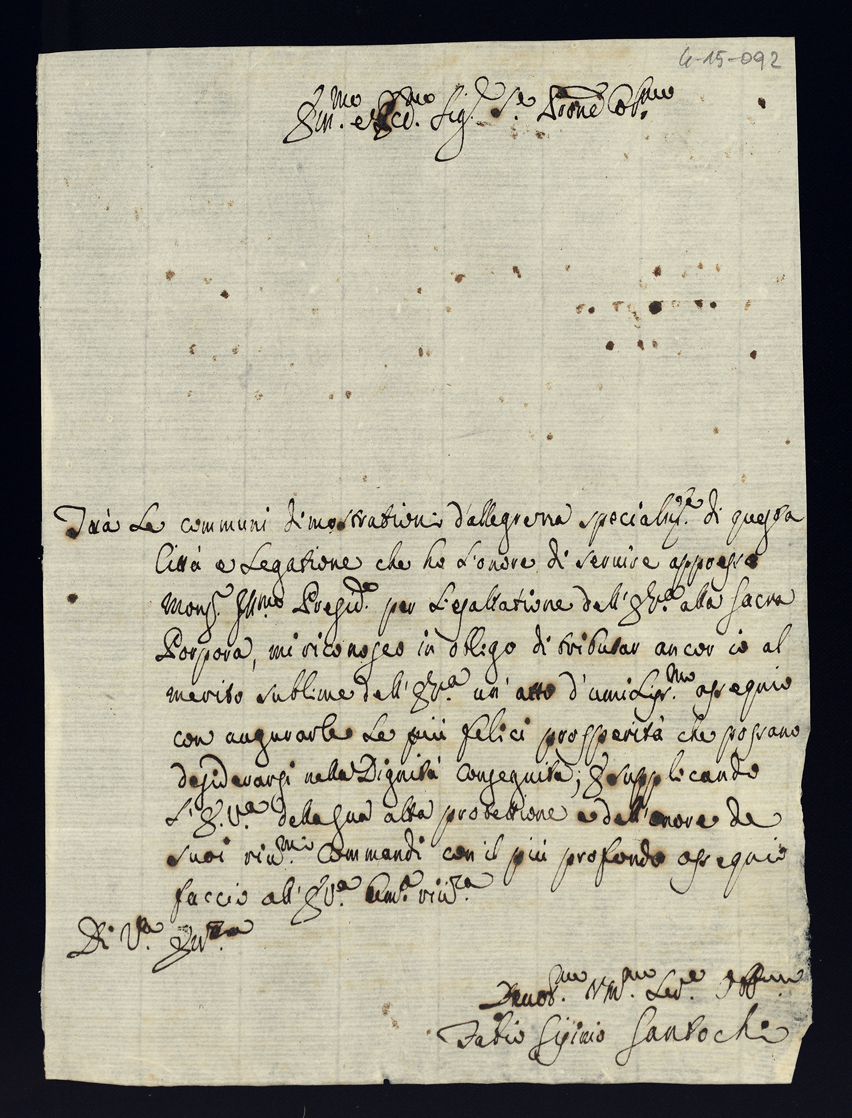 4-15-092
Em.mo e Red.mo Sig.r S.e Prone Ob.mo
Trà le communi dimostrationi d'allegrezza specialm.te di questa
Città e Legatione che ho l'onore di servire appresso
Mons.r Ill.mo Presid.e per l'esaltatione dell'E.V.a alla Sacra
Porpora, mi riconosco in obligo di tributar ancor io al
merito sublime dell'E.V.a un'atto d'umiliss.mo ossequio
con augurarle le più felici prosperità che possano
desiderarsi nella Dignità conseguita; E supplicando
l'E.V.a della sua alta protettione e dell'onore de
suoi riv.mi Commandi con il più profondo ossequio
faccio all'E.V.a um.a riv.za
Di V.a Em.za
Devot.mo Um.mo Ser.e Obb.mo
Fabio